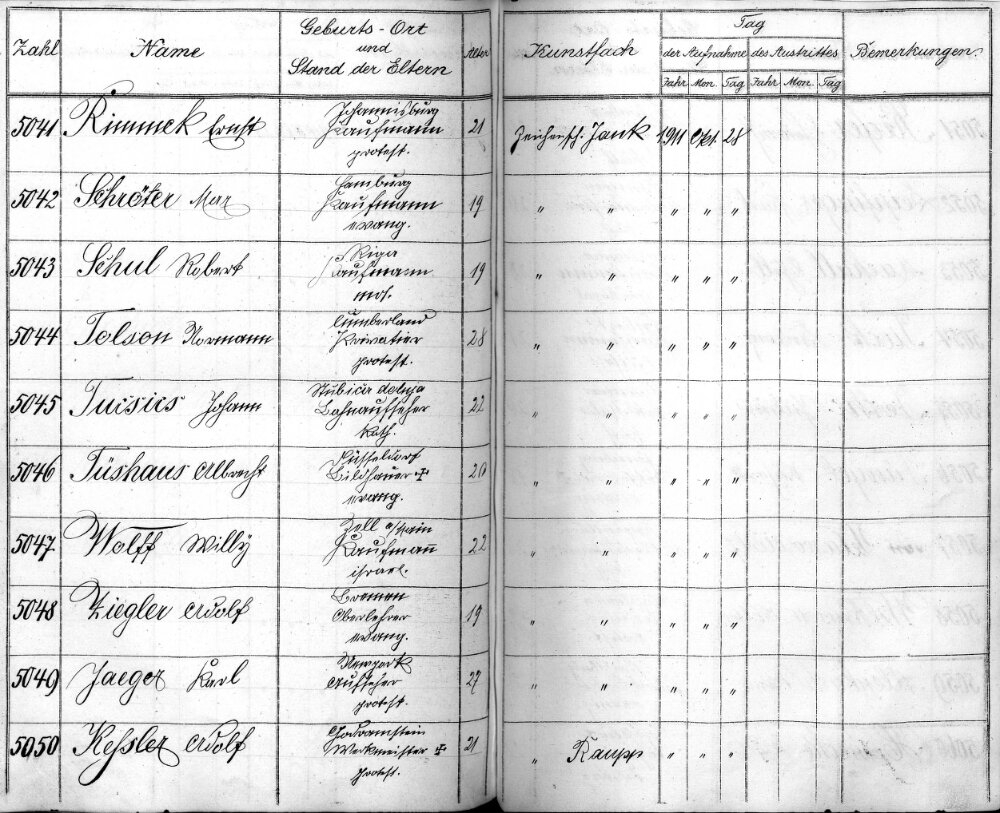 Zahl Name Geburts-Ort und Stand der Eltern Alter Kunstfach Tag der Aufnahme des Austrittes Bemerkungen.
Jahr Mon. Tag Jahr Mon. Tag
5041 Rimmek Ernst Johannisburg Kaufmann protest. 21 Zeichensch. Jank 1911 Okt. 28
5042 Schröter Max Hamburg Kaufmann evang. 19 " " " " "
5043 Schul Robert Riga Kaufmann mos. 19 " " " " "
5044 Tolson Normann Cumberland Privatier protest. 28 " " " " "
5045 Johann Stubica dolnja Bahnaufseher kath. 22 " " " " "
5046 Tüshaus Albrecht Düsseldorf Bildhauer † evang. 20 " " " " "
5047 Wolff Willy Zell a/Main Kaufmann israel. 22 " " " " "
5048 Ziegler Adolf Bremen Oberlehrer evang. 19 " " " " "
5049 Jaeger Karl Newyork Aufseher protest. 27 " " " " "
5050 Kessler Adolf Godramstein Werkmeister † protest. 21 " Raupp " " "